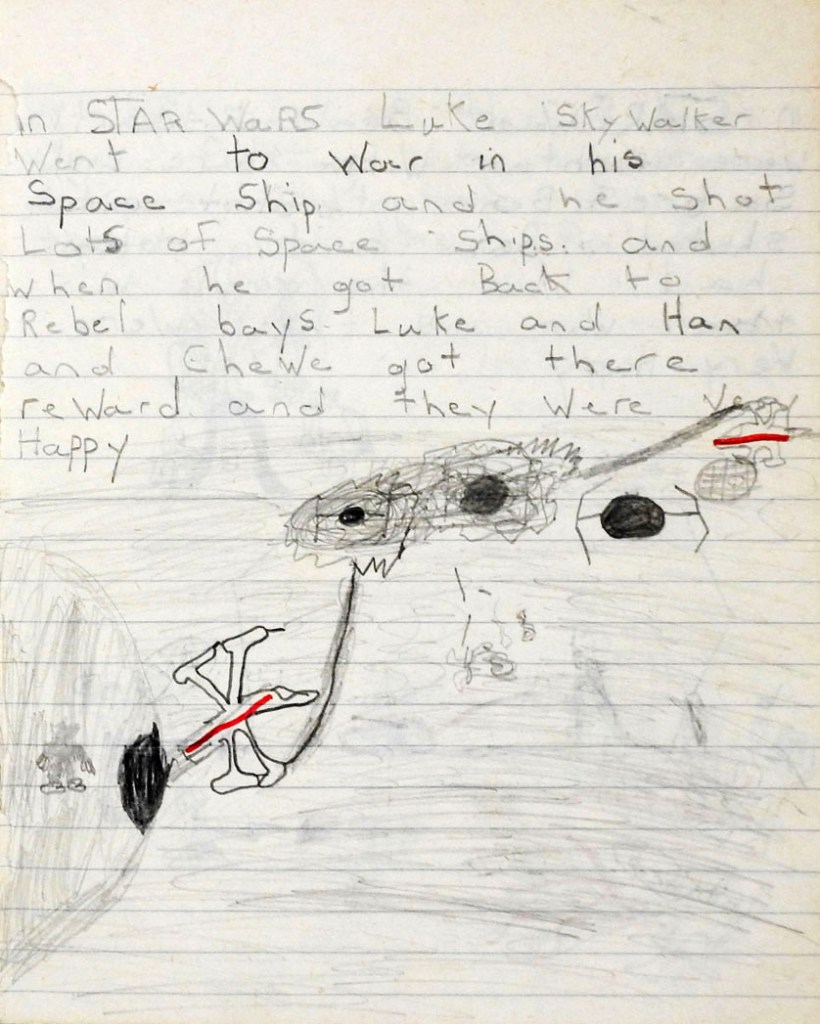 in STAR WARS Luke SkyWalker
Went to War in his
Space Ship and he shot
Lots of Space ships. and
when he got Back to
Rebel bays. Luke and Han
and Chewe got there
reward. and they were Very
Happy